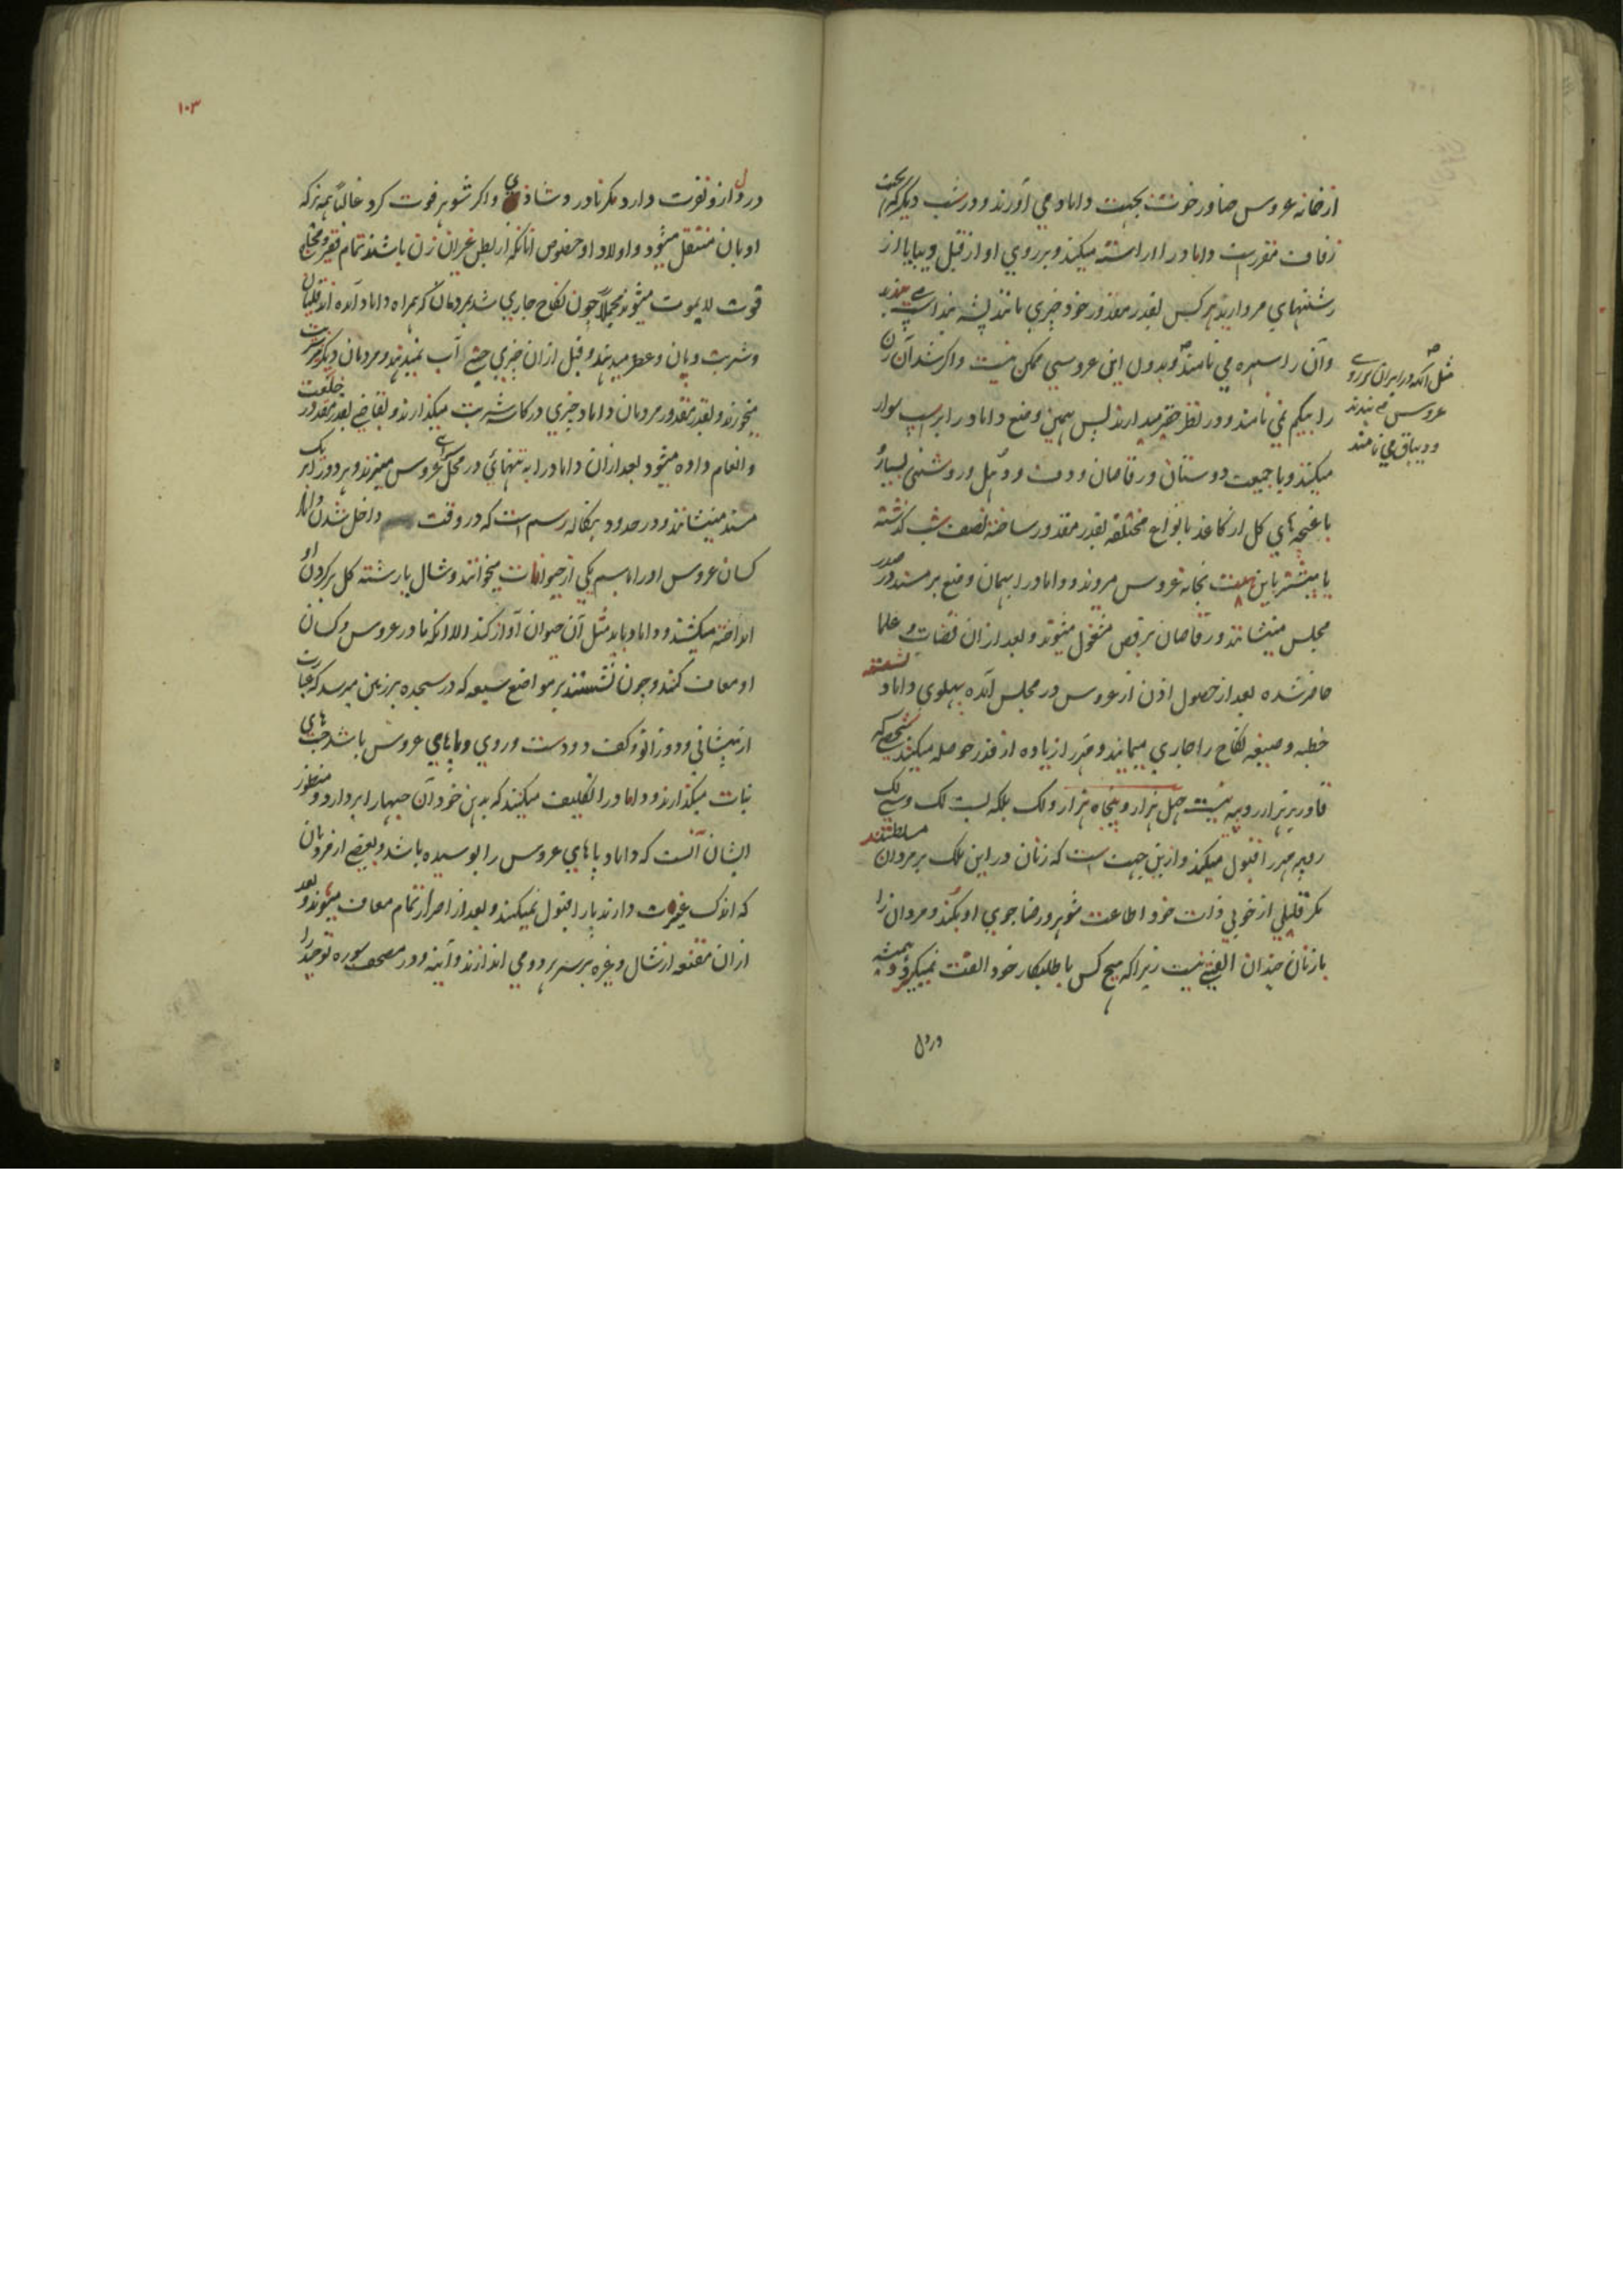 از خانه عروس ضاور خوت بجهت داماد می آورند و در شب دیگر که بجهت
زفاف مقررست داماد را اراسته میکنند و بر روی او از قبل و یبا یا از
رشتهای مروارید هر کس بقدر مقدور خود چیزی مانند پشه بند است می بندند
وآن را سهره می نامند و بدون این عروسی ممکن نیست و اگر نشد آن زن
را بیگم نمی نامند و در نظر حقیر میدارند پس بهمین وضع داماد را بر اسپ سوار
میکنند و با جمیعت دوستان و رقاصان و دف و دهل و روشنی بسیار و
باغچه های کل از کاغذ بانواع مختلفه بقدر مقدور ساخته نصف شب گذشته
یا پیشتر باین هیئت بخانه عروس میروند و داماد را بهمان وضع بر مسند در صدر
مجلس مینشانند و رقاصان برقص مشغول میشوند و بعد از ان قضات و علما
حاضر شده بعد از حصول اذن از عروس در مجلس آمده پهلوی داماد نشسته
خطبه و صیغه نکاح را جاری مینمایند و مهر را زیاده از قدر حوصله میکنند شخصی که
قادر بر هزار روپیه نیست چهل هزار و پنجاه هزار و لک بلکه بست لک و سی لک
روپیه مهر را قبول میکند و ازین جهت است که زنان در این ملک بر مردان مسلطند
مگر قلیلی از خوبی ذات خود اطاعت شوهر و رضا جوی او بکنند و مردان را
با زنان چندان الفتی نیست زیرا که هیچ کس با طلبکار خود الفت نمیگیرد و همیشه
در دل
مثل آنکه در ایران بر روی
عروس می بندند
و دیباق می نامند
۱۰۳
در دل از و نفرت دارد مگر نادر و شاذی و اگر شوهر فوت کرد غالباً همه ترکه
او بان منتقل میشود و اولاد او خصوص انانکه از بطن غیر ان زن باشند تمام فقیر و محتاج
قوت لا یموت میشوند مجملاً چون نکاح جاری شد بمردمان که همراه داماد آمده اند قلیان
و شربت و پان و عطر میدهند و قبل از ان چیزی حتی آب نمیدهند و مردمان دیگر شربت
میخورند و بقدر مقدور مردمان داماد چیزی در کاسه شربت میگذارند و بقاضی بقدر مقدور خلعت
و انعام داده میشود بعد از ان داماد را به تنهائی در محل سرای عروس میبرند و هر دو را بر یک
مسند مینشانند و در حدود بنگاله رسم است که در وقت داخل شدن داماد
کسان عروس او را باسم یکی از حیوانات میخوانند و شال یا رشته کل بر گردن او
انداخته میکشند و داماد باید مثل آن حیوان آواز کند الا انکه مادر عروس و کسان
او معاف کنند و چون نشستند بر مواضع سبعه که در سجده بر زمین میرسد که عبارت
از پیشانی و دو زانو و کف دو دست و روی و پاهای عروس باشد حبهای
نبات میگذارند و داماد را تکلیف میکنند که بدهن خود آن حبها را بر دارد و منظور
ایشان آنست که داماد پاهای عروس را بوسیده باشد و بعضی از مردمان
که اندک غیرت دارند پا را قبول نمیکنند و بعد از اصرار تمام معاف میشوند و بعد
از ان مقنعه از شال و غیره بر سر هر دو می اندازند و آینه و در مصحف سوره توحید را